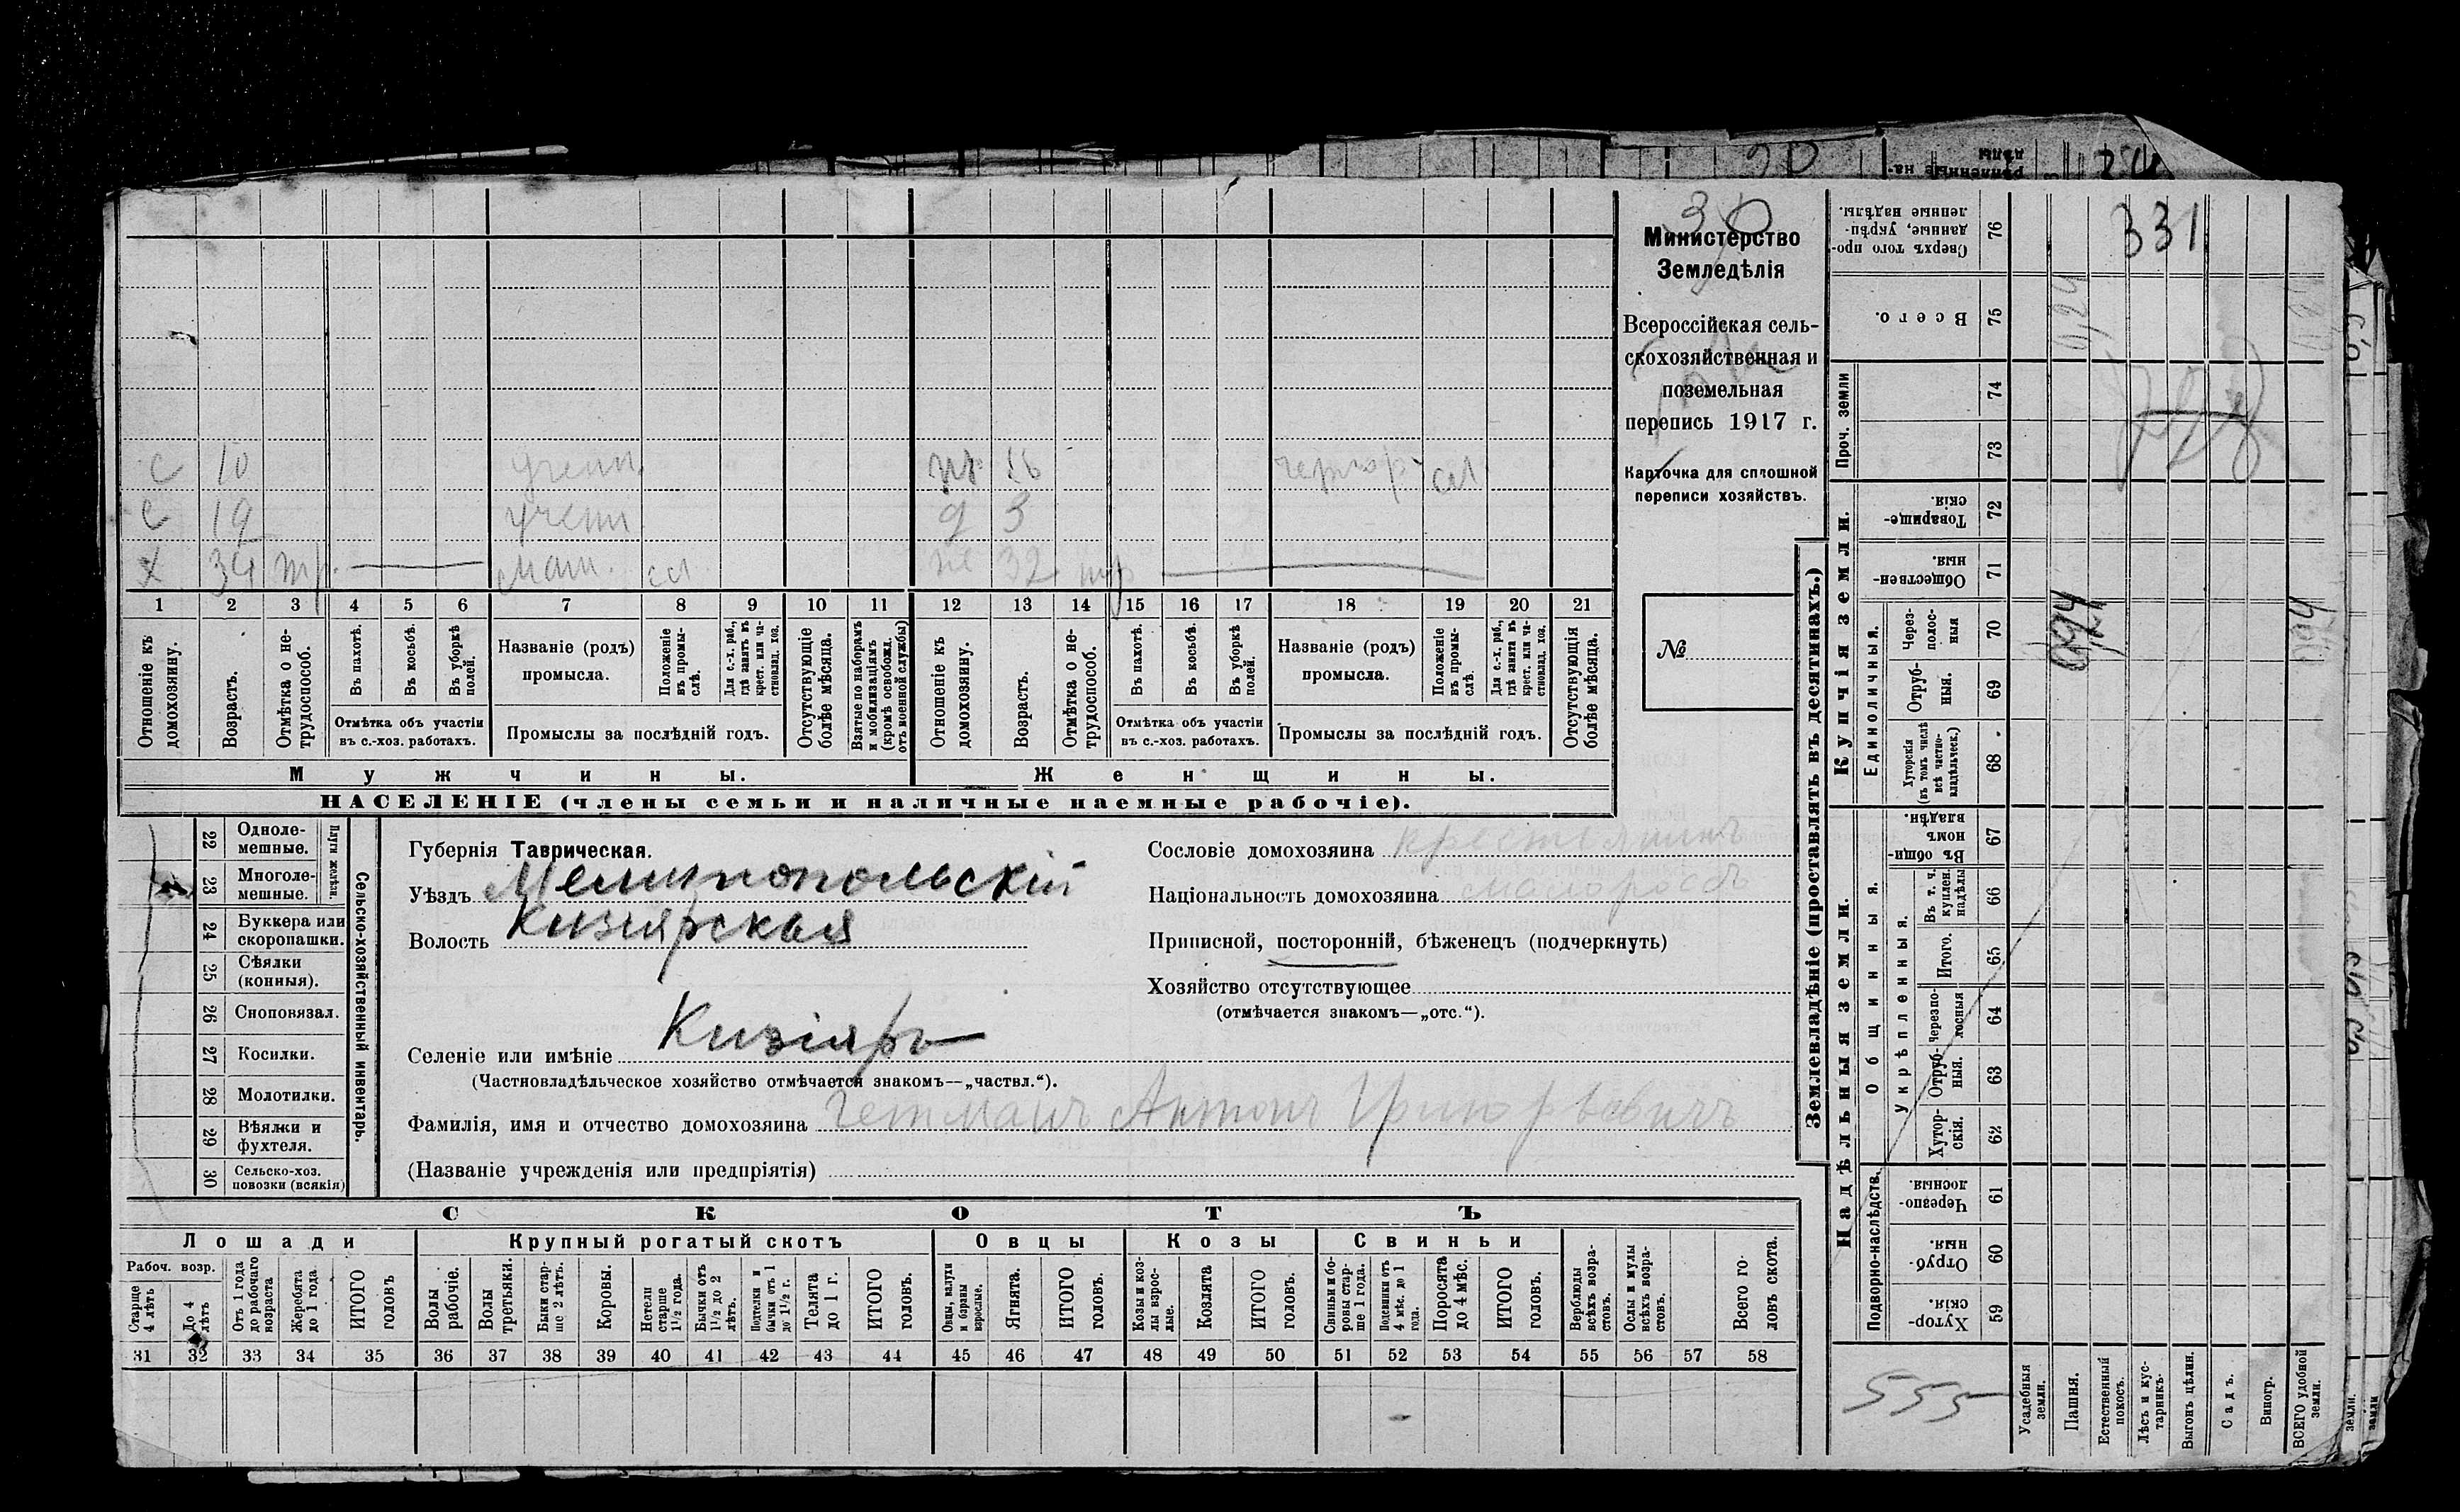 30
331
Министерство
Земледѣлія
Всероссійская сель-
скохозяйственная и
поземельная
перепись 1917 г.
Карточка для сплошной
переписи хозяйствъ.
№
С 10 учен.
С 12 учен. д 3
Х 34 тр. 32 тр
1 2 3 4 5 6 7 8 9 10 11 12 13 14 15 16 17 18 19 20 21
Отношеніе къ домохозяину.
Возрастъ.
Отмѣтка о не-трудоспособ.
Въ пахотѣ.
Въ косьбѣ.
Въ уборкѣ полей.
Отмѣтка объ участіи
въ с.-хоз. работахъ.
Названіе (родъ)
промысла.
Положеніе въ промы-слѣ.
Для с.-х. раб., гдѣ занятъ въ крест. или ча-стновлад. хоз.
Промыслы за послѣдній годъ.
Отсутствующіе болѣе мѣсяца.
Взятые по наборамъ и мобилизаціямъ (кромѣ освобожд. отъ военной службы)
Отношеніе къ домохозяину.
Возрастъ.
Отмѣтка о не-трудоспособ.
Въ пахотѣ.
Въ косьбѣ.
Въ уборкѣ полей.
Отмѣтка объ участіи
въ с.-хоз. работахъ.
Названіе (родъ)
промысла.
Положеніе въ промы-слѣ.
Для с.-х. раб., гдѣ занята въ крест. или ча-стновлад. хоз.
Промыслы за послѣдній годъ.
Отсутствующія болѣе мѣсяца.
Мужчины. Женщины.
НАСЕЛЕНІЕ (члены семьи и наличные наемные рабочіе).
Сельско-хозяйственный инвентарь.
Плуги желѣзн.
22 Одноле-мешные.
23 Многоле-мешные.
24 Буккера или скоропашки.
25 Сѣялки (конныя).
26 Сноповязал.
27 Косилки.
28 Молотилки.
29 Вѣялки и фухтеля.
30 Сельско-хоз. повозки (всякія)
Губернія Таврическая.
Уѣздъ Мелитопольскій
Волость Кизіярская
Селеніе или имѣніе Кизіяръ
(Частновладѣльческое хозяйство отмѣчается знакомъ—„частвл.“).
Фамилія, имя и отчество домохозяина Гетманъ Антонъ Григорьевичъ
(Названіе учрежденія или предпріятія)
Сословіе домохозяина крестьянинъ
Національность домохозяина малороссъ
Приписной, посторонній, бѣженецъ (подчеркнуть)
Хозяйство отсутствующее
(отмѣчается знакомъ—„отс.“).
СКОТЪ
Лошади Крупный рогатый скотъ Овцы Козы Свиньи
Рабоч. возр.
Старше 4 лѣтъ
До 4 лѣтъ
Отъ 1 года до рабочаго возраста
Жеребята до 1 года.
ИТОГО головъ
Волы рабочіе.
Волы третьяки.
Быки стар-ше 2 лѣтъ.
Коровы.
Нетели старше 1½ года.
Бычки отъ 1½ до 2 лѣтъ.
Подтелки и бычки отъ 1 до 1½ г.
Телята до 1 г.
ИТОГО головъ.
Овцы, валухи и бараны взрослые.
Ягнята.
ИТОГО головъ.
Козы и коз-лы взрос-лые.
Козлята
ИТОГО головъ.
Свиньи и бо-ровы стар-ше 1 года.
Подсвинки отъ 4 мѣс. до 1 года.
Поросята до 4 мѣс.
ИТОГО головъ.
Верблюды всѣхъ возра-стовъ.
Ослы и мулы всѣхъ возра-стовъ.
Всего го-ловъ скота.
31 32 33 34 35 36 37 38 39 40 41 42 43 44 45 46 47 48 49 50 51 52 53 54 55 56 57 58
Землевладѣніе (проставлять въ десятинахъ.)
Сверхъ того про-данные, укрѣп-ленные надѣлы. 76
Всего. 75
Проч. земли
74
73
Купчія земли.
Товарище-скія. 72
Обществен-ныя. 71
Единоличныя.
Через-полос-ныя 70
Отруб-ныя. 69
Хуторскія (въ томъ числѣ всѣ частно-владѣльческ.) 68
Надѣльныя земли.
Общинныя.
Въ общин-номъ владѣн. 67
Укрѣпленныя.
Въ т. ч. куплен. надѣлы 66
Итого. 65
Черезпо-лосныя 64
Отруб-ныя. 63
Хутор-скія. 62
Подворно-наслѣдств.
Черезпо-лосныя. 61
Отруб-ныя. 60
Хутор-скія. 59
555
Усадебныя земли.
Пашня.
Естественный покосъ.
Лѣсъ и кус-тарникъ.
Выгонъ цѣлин.
Садъ.
Виногр.
ВСЕГО удобной земли.